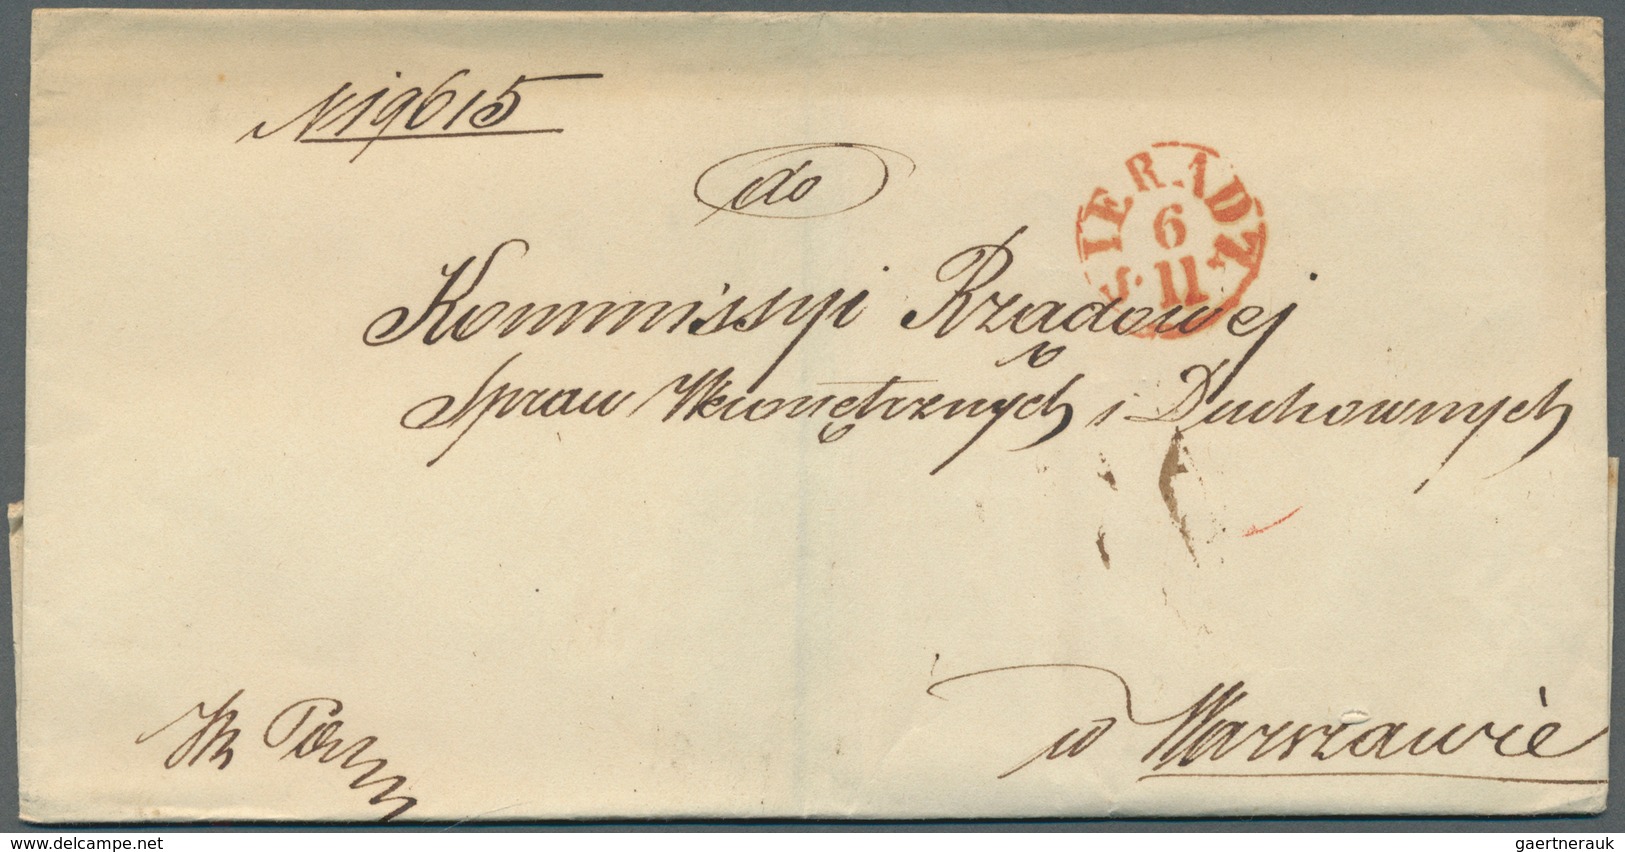 N 19615
do
SIERADZ
6
11
Kommissyi Rządowej
Spraw Wewnętrznych i Duchownych
w Warszawie
gaertnerauk